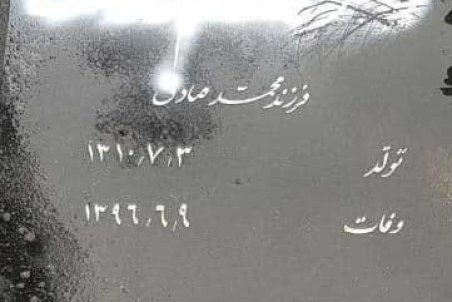 فرزند محمد صادق
تولد ۱۳۱۰٫۷٫۳
وفات ۱۳۹۶٫۶٫۹